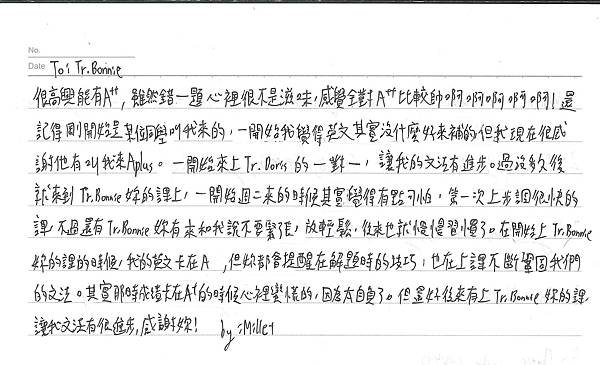 No.
Date To: Tr. Bonnie
很高興能有A++,雖然錯一題心裡很不是滋味,感覺全對A++比較帥啊啊啊啊啊!還
記得剛開始是某位同學叫我來的,一開始我覺得英文其實沒什麼好來補的,但我現在很感
謝他有叫我來Aplus。一開始來上Tr. Doris的一對一,讓我的文法有進步。過沒多久後
就來到Tr. Bonnie妳的課上,一開始週二來的時候其實覺得有點可怕,第一次上步調很快的
課,不過還有Tr. Bonnie妳有來和我說不要緊張,放輕鬆,後來也就慢慢習慣了。在開始上Tr. Bonnie
妳的課的時候,我的英文卡在A,但妳都會提醒在解題時的技巧,也在上課不斷鞏固我們
的文法。其實那時成績卡在A+的時候心裡變樣的,因為太自負了。但還好後來有上Tr. Bonnie妳的課
讓我文法有很進步,感謝妳! by: Miller